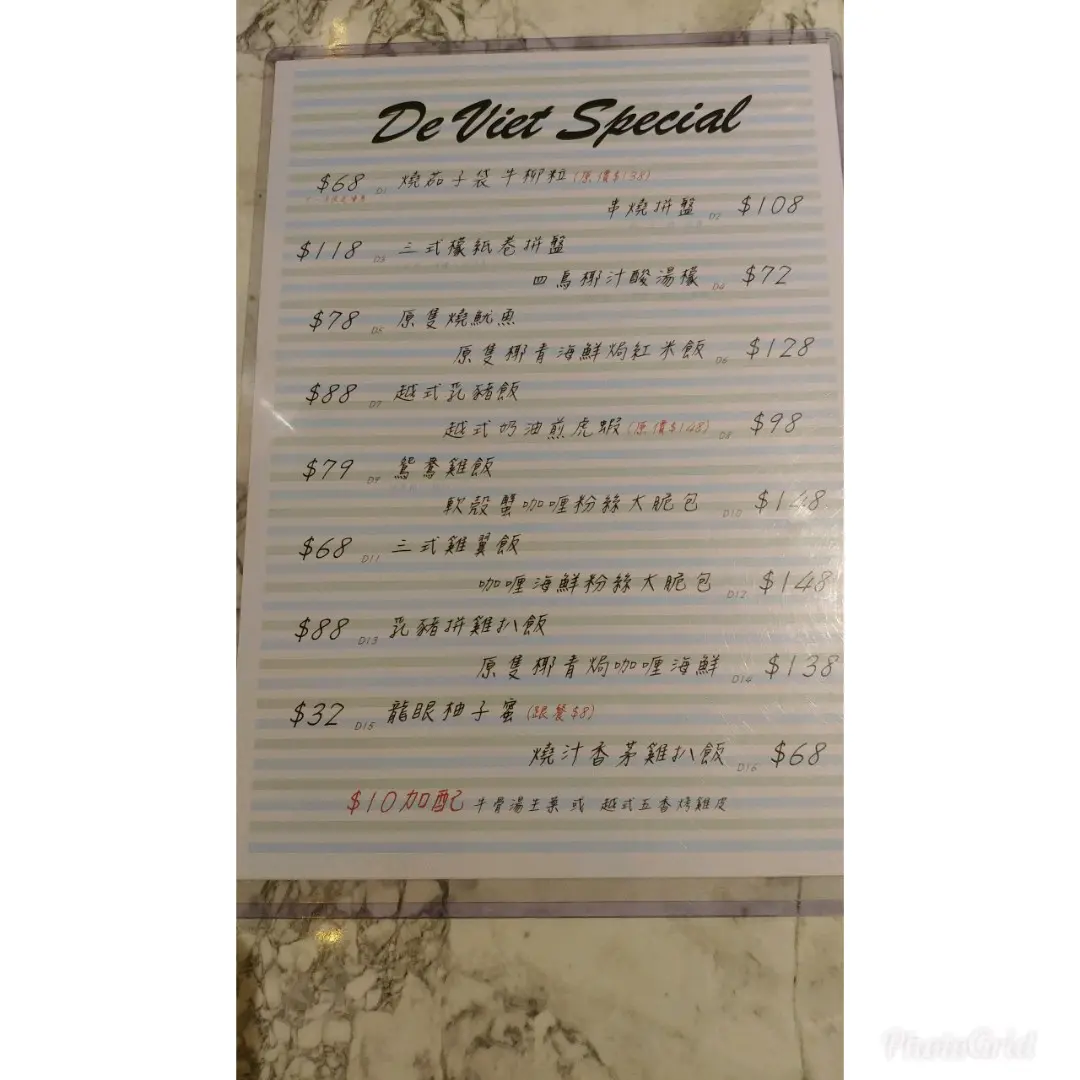 De Viet Special
$68 D1 燒茄子袋牛柳粒 (原價$138)
串燒拼盤 D2 $108
$118 D3 三式檬紙卷拼盤
四鳥椰汁酸湯檬 D4 $72
$78 D5 原隻燒魷魚
原隻椰青海鮮焗紅米飯 D6 $128
$88 D7 越式乳豬飯
越式奶油煎虎蝦 (原價$148) D8 $98
$79 D9 鴛鴦雞飯
軟殼蟹咖喱粉絲大脆包 D10 $148
$68 D11 三式雞翼飯
咖喱海鮮粉絲大脆包 D12 $148
$88 D13 乳豬拼雞扒飯
原隻椰青焗咖喱海鮮 D14 $138
$32 D15 龍眼柚子蜜 (跟餐$8)
燒汁香茅雞扒飯 D16 $68
$10加配 牛骨湯生菜 或 越式五香烤雞皮
PhotoGrid